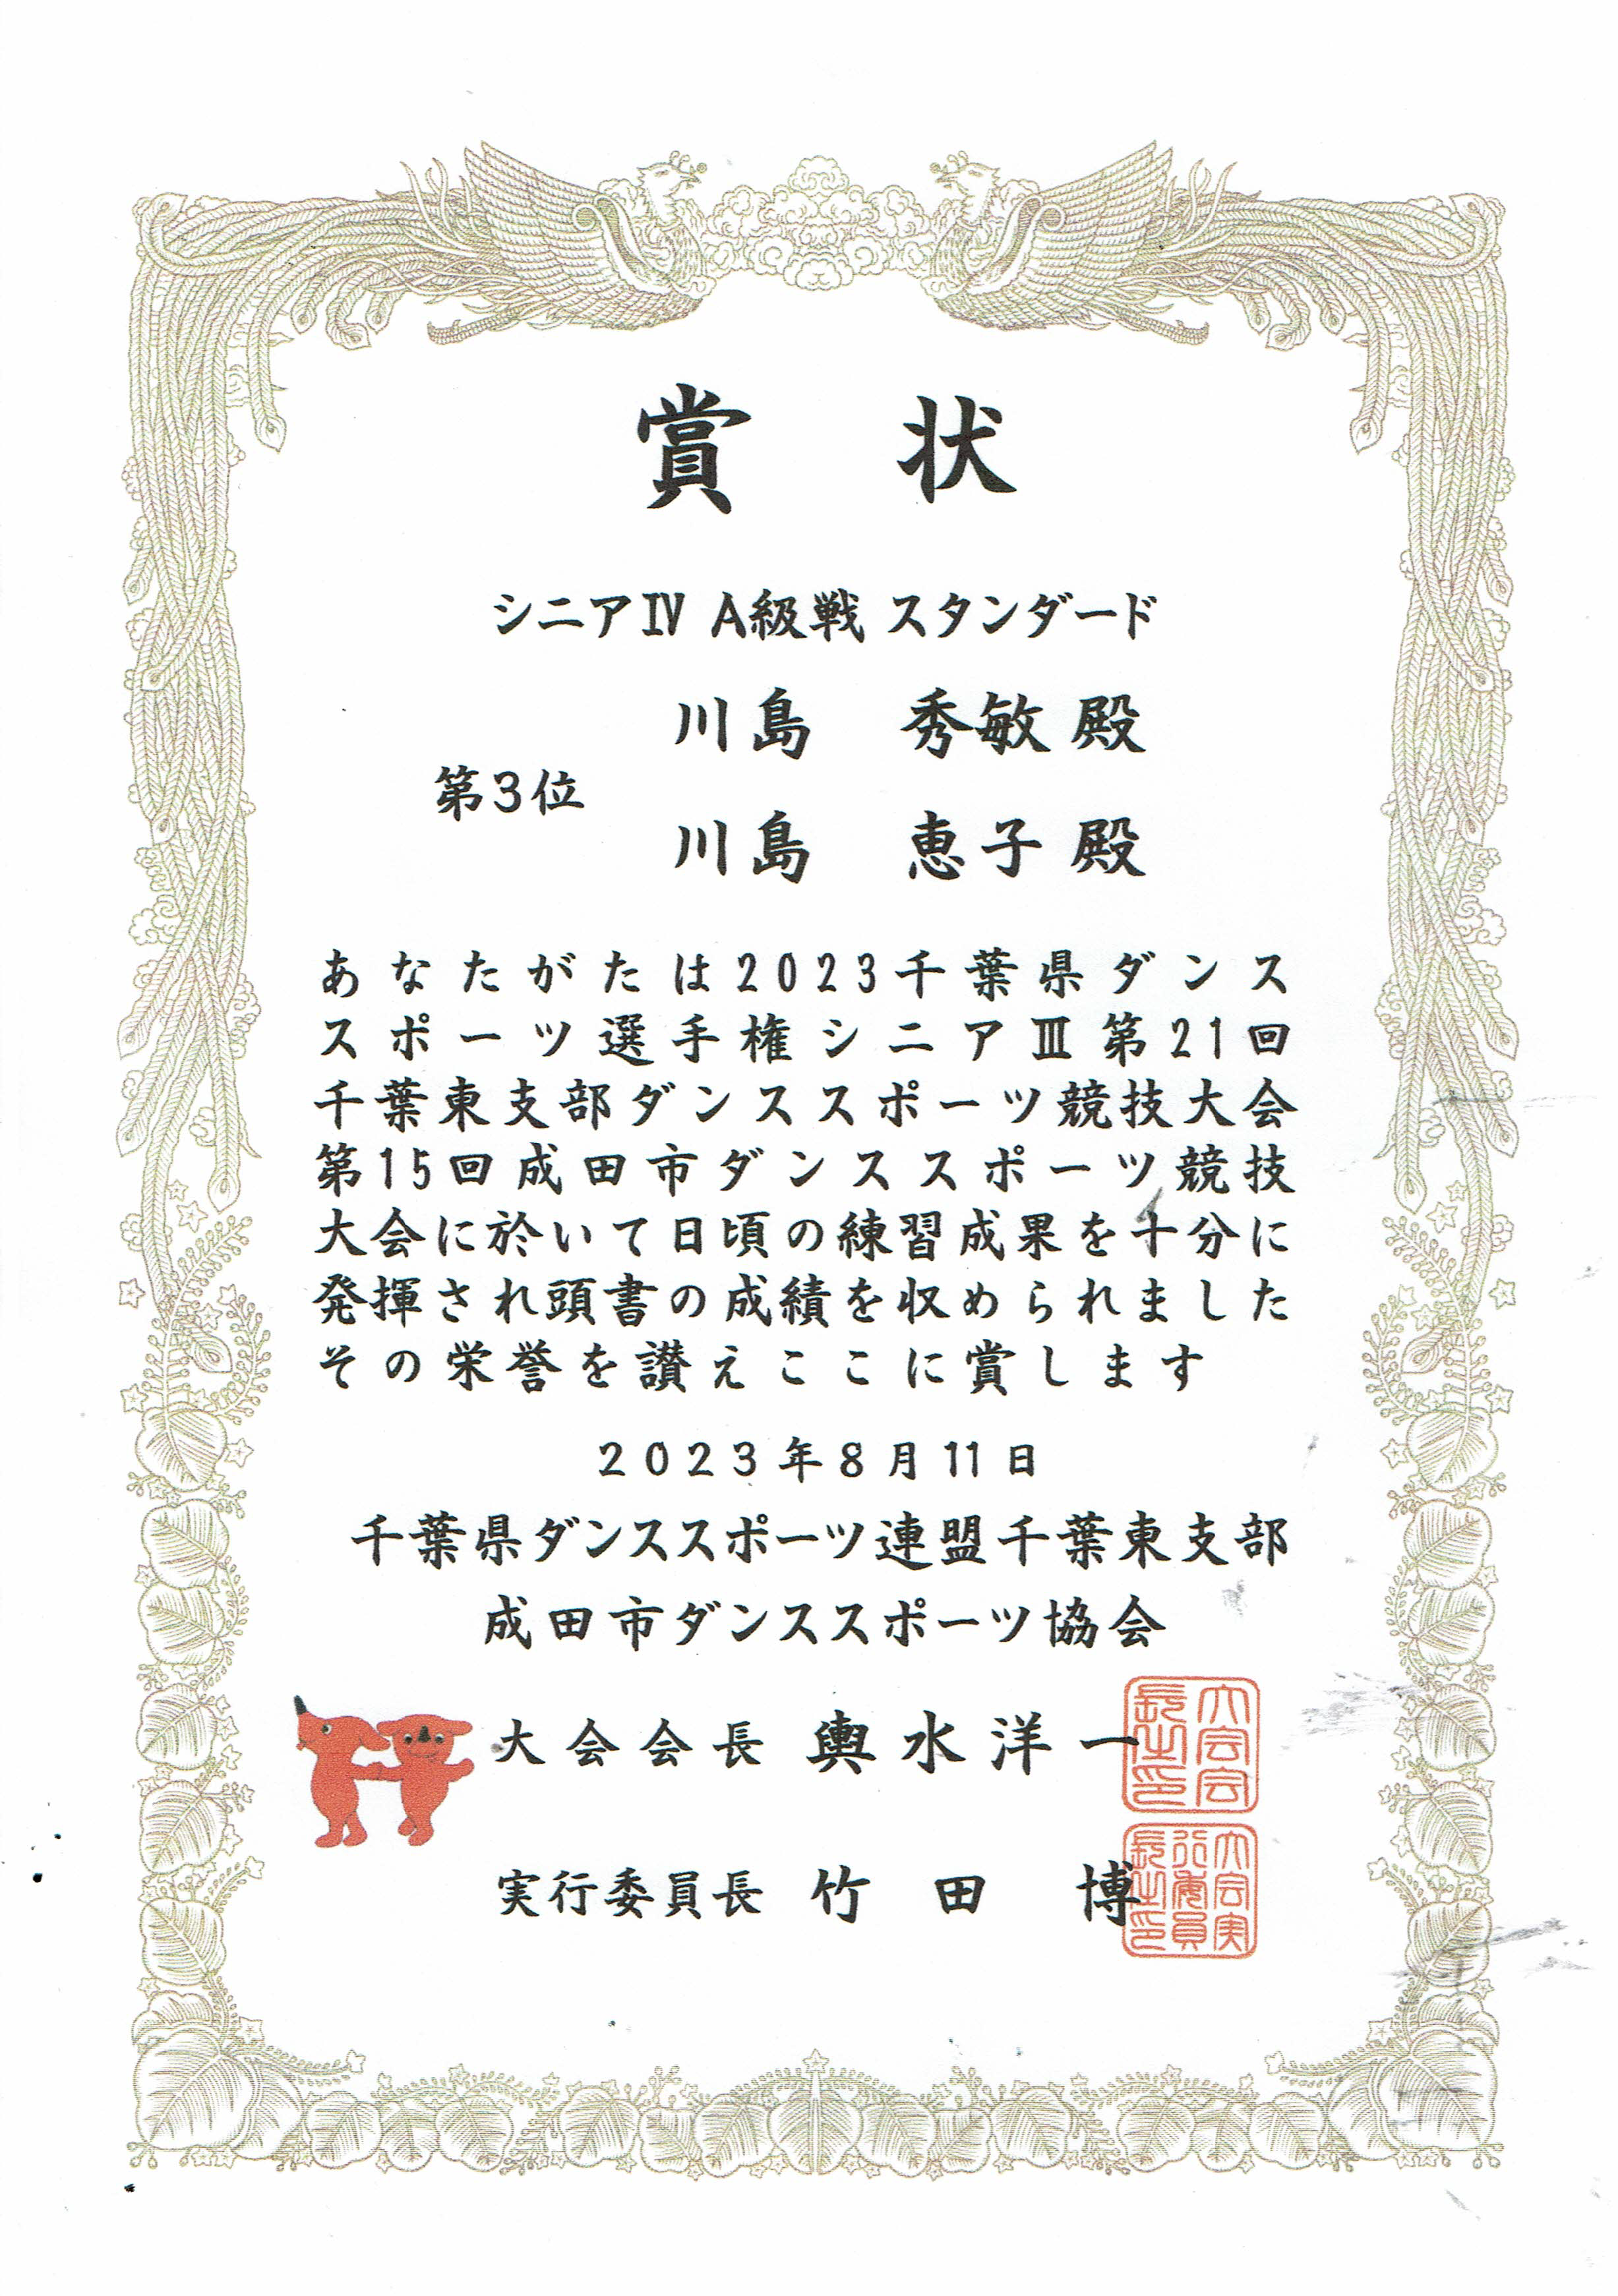 賞 状
シニアⅣ A級戦 スタンダード
川島 秀敏 殿
第3位
川島 恵子 殿
あなたがたは2023千葉県ダンス
スポーツ選手権シニアⅢ第21回
千葉東支部ダンススポーツ競技大会
第15回成田市ダンススポーツ競技
大会に於いて日頃の練習成果を十分に
発揮され頭書の成績を収められました
その栄誉を讃えここに賞します
2023年8月11日
千葉県ダンススポーツ連盟千葉東支部
成田市ダンススポーツ協会
大会会長 輿水洋一
大会会長之印
実行委員長 竹田 博
大会実行委員長之印